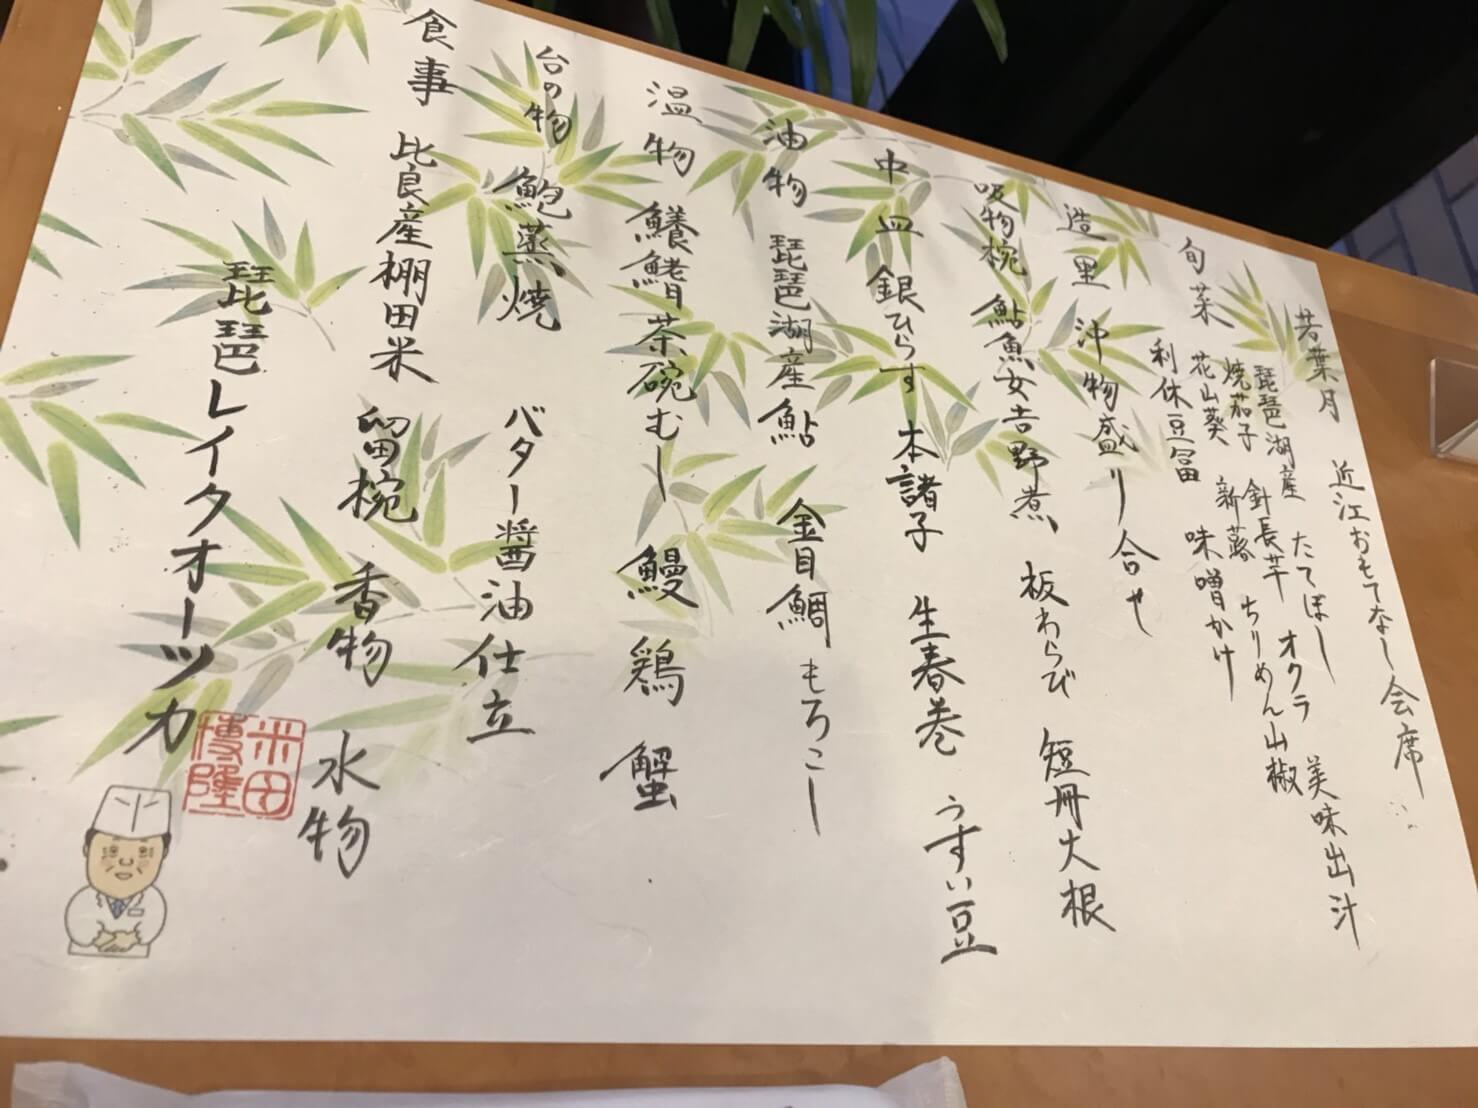 若葉月　近江おもてなし会席
旬菜　琵琶湖産　たてぼし　オクラ　美味出汁
焼茄子　針長芋　ちりめん山椒
花山葵　新蕗　味噌かけ
利休豆冨
造里　沖物盛り合せ
吸物椀　鮎魚女吉野煮　板わらび　短冊大根
中皿　銀ひらす　本諸子　生春巻　うすい豆
油物　琵琶湖産鮎　金目鯛　もろこし
温物　鱶鰭茶碗むし　鰻　鶏　蟹
台の物　鮑蒸焼　バター醤油仕立
食事　比良産棚田米　留椀　香物　水物
琵琶レイクオーツカ
米田
博隆